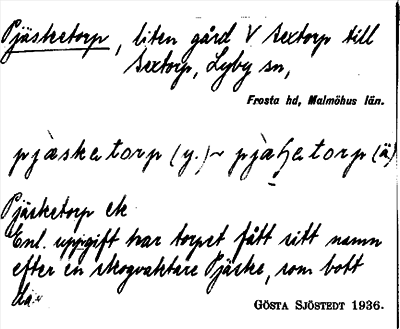 Pjäsketorp, liten gård V Sextorp till
Sextorp, Lyby sn,
Frosta hd, Malmöhus län.
pjàsketorp (y.) ~ pjàʃetorp (ä)
Pjäsketorp ek
Enl. uppgift har torpet fått sitt namn
efter en skogvaktare Pjäske, som bott
där
GÖSTA SJÖSTEDT 1936.